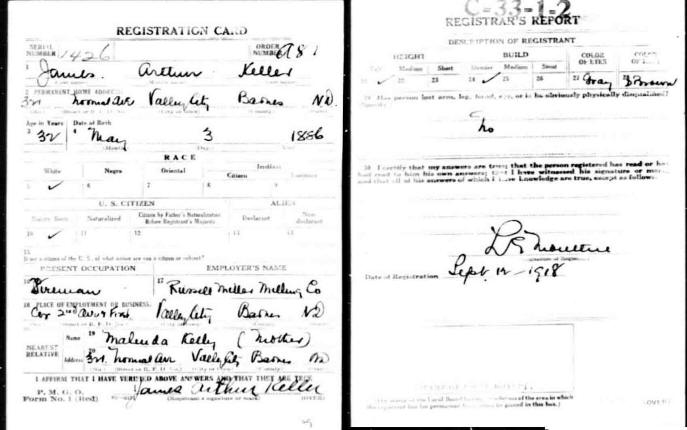 REGISTRATION CARD
SERIAL NUMBER 1426 ORDER NUMBER
1 James Arthur Keller
2 PERMANENT HOME ADDRESS:
Normal Av Valley City Barnes ND
Age in Years Date of Birth
3 32 4 May 3 1886
RACE
White Negro Oriental Indian
Citizen
5 ✓ 6 7 8 9
U. S. CITIZEN ALIEN
Native Born Naturalized Citizen by Father's Naturalization Before Registrant's Majority Declarant Non-declarant
10 ✓ 11 12 13 14
15
If not a citizen of the U. S., of what nation are you a citizen or subject?
PRESENT OCCUPATION EMPLOYER'S NAME
16 Fireman 17 Russell Miller Milling Co
18 PLACE OF EMPLOYMENT OR BUSINESS:
Cor 2nd Av & Front Valley City Barnes ND
NEAREST RELATIVE Name 19 Malinda Kelly (Mother)
Address 20 Normal Av Valley City Barnes ND
I AFFIRM THAT I HAVE VERIFIED ABOVE ANSWERS AND THAT THEY ARE TRUE
P. M. G. O.
Form No. 1 (Red) James Arthur Keller
(Registrant's signature or mark) (OVER)
C-33-1-2
REGISTRAR'S REPORT
DESCRIPTION OF REGISTRANT
HEIGHT BUILD COLOR OF EYES COLOR OF
Tall Medium Short Slender Medium Stout
21 ✓ 22 23 24 ✓ 25 26 27 Gray 28 Brown
29 Has person lost arm, leg, hand, eye, or is he obviously physically disqualified?
No
30 I certify that my answers are true; that the person registered has read or has
had read to him his own answers; that I have witnessed his signature or mark,
and that all of his answers of which I have knowledge are true, except as follows:
Date of Registration Sept 12 - 1918
(OVER)